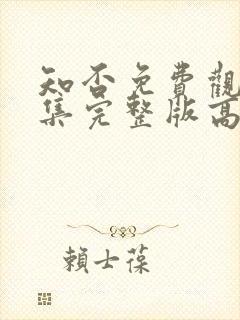 知否免費觀
集完整版高
賴士葆